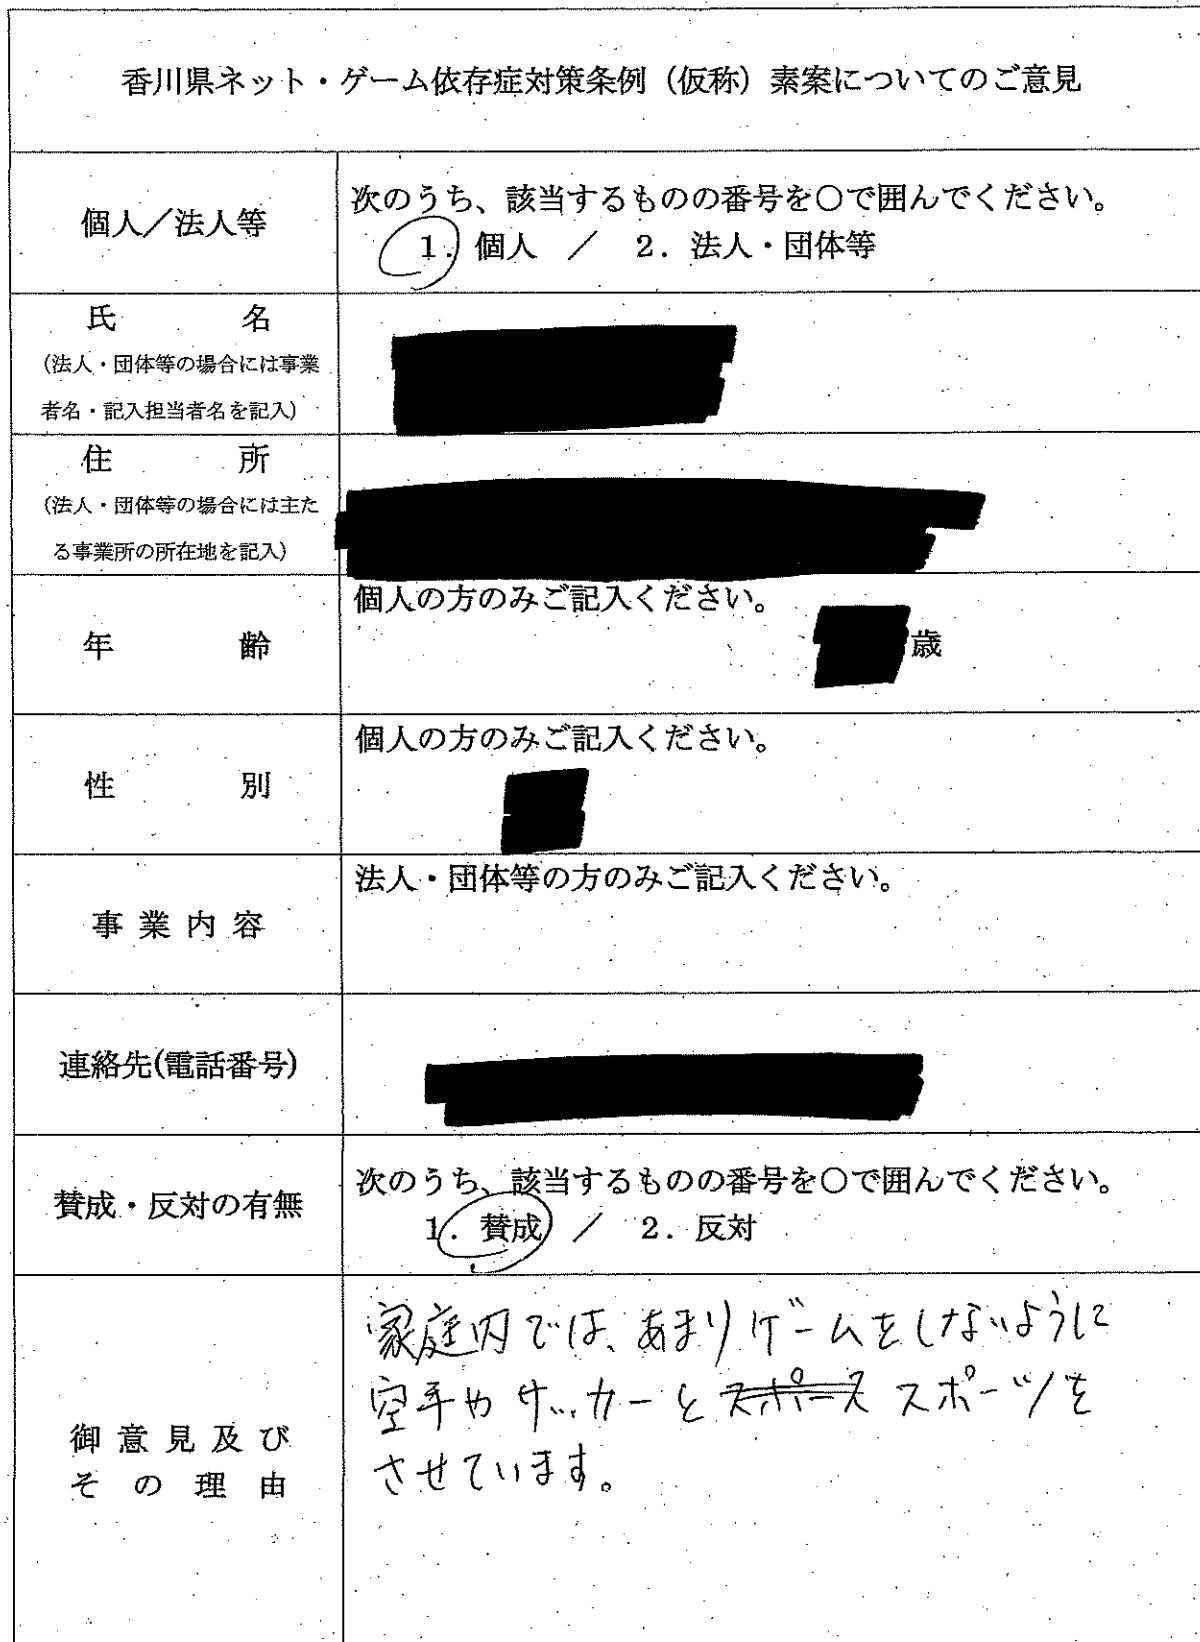 香川県ネット・ゲーム依存症対策条例（仮称）素案についてのご意見
個人／法人等
次のうち、該当するものの番号を○で囲んでください。
1．個人 ／ 2．法人・団体等
氏名
（法人・団体等の場合には事業
者名・記入担当者名を記入）
住所
（法人・団体等の場合には主た
る事業所の所在地を記入）
年齢
個人の方のみご記入ください。
歳
性別
個人の方のみご記入ください。
事業内容
法人・団体等の方のみご記入ください。
連絡先(電話番号)
賛成・反対の有無
次のうち、該当するものの番号を○で囲んでください。
1．賛成 ／ 2．反対
御意見及び
その理由
家庭内では、あまりゲームをしないように
空手やサッカーとスポース スポーツを
させています。